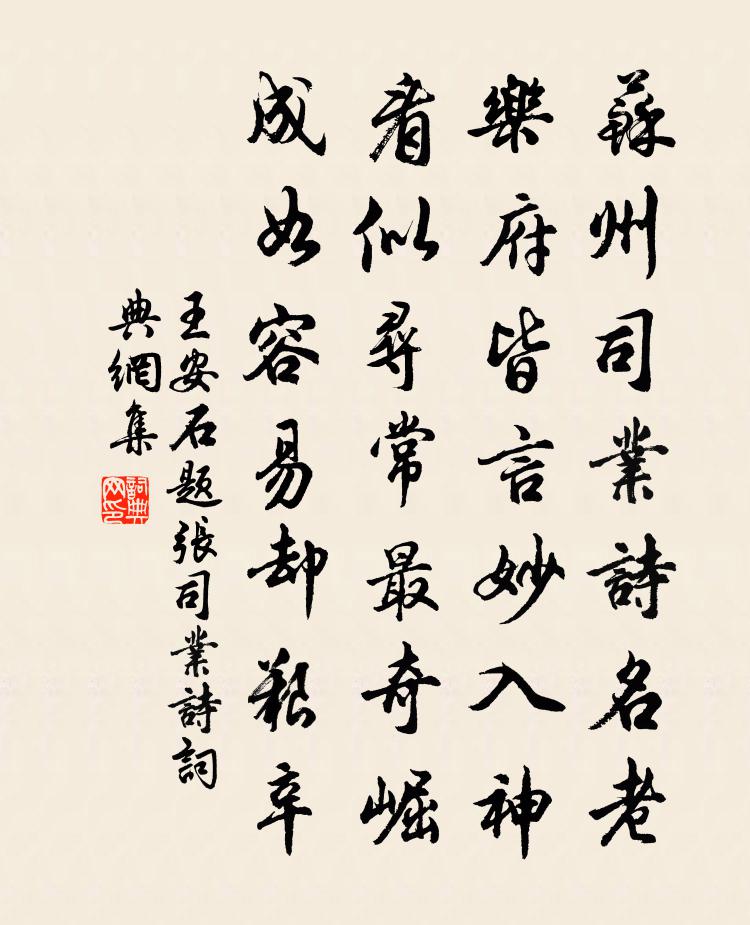 蘇州司業詩名老
樂府皆言妙入神
看似尋常最奇崛
成如容易却艱辛
王安石題張司業詩詞
典網集
詞典
网印